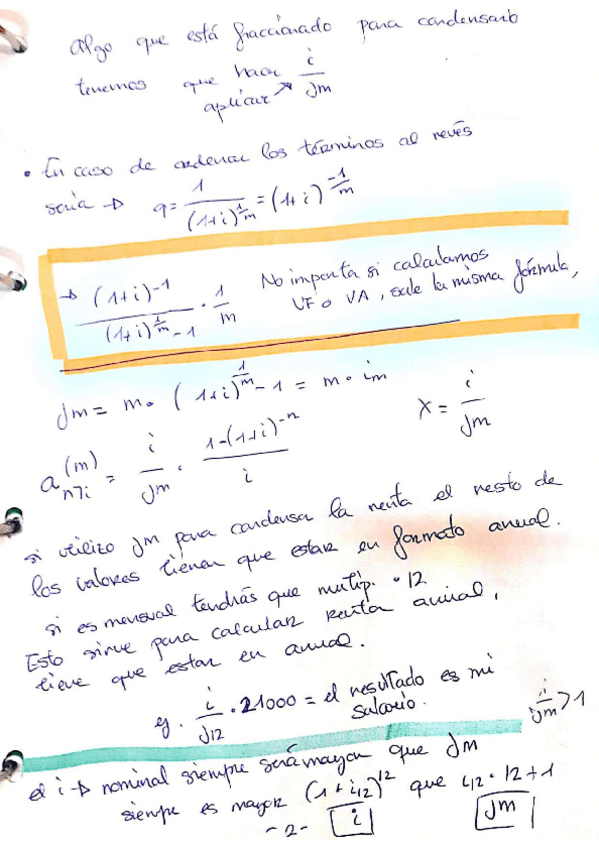 Algo que está fraccionado para condensarlo
tenemos que hacer i/Jm
aplicar ↗
• En caso de ordenar los términos al revés
sería → q = 1/(1+i)^(1/m) = (1+i)^(-1/m)
→ (1+i)^-1 / (1+i)^(1/m) - 1 · 1/m No importa si calculamos
VF o VA, sale la misma fórmula,
Jm = m · (1+i)^(1/m) - 1 = m · im
X = i/Jm
a^(m) n┐i = i/Jm · 1-(1+i)^-n / i
si utilizo Jm para condensa la renta el resto de
los valores tienen que estar en formato anual.
si es mensual tendrás que multip. · 12
Esto sirve para calcular renta anual,
tieve que estar en anual.
ej. i/J12 · 21000 = el resultado es mi
salario.
i/Jm > 1
el i → nominal siempre será mayor que Jm
siempre es mayor (1 + i12)^12 que i12 · 12 + 1
-2- i Jm